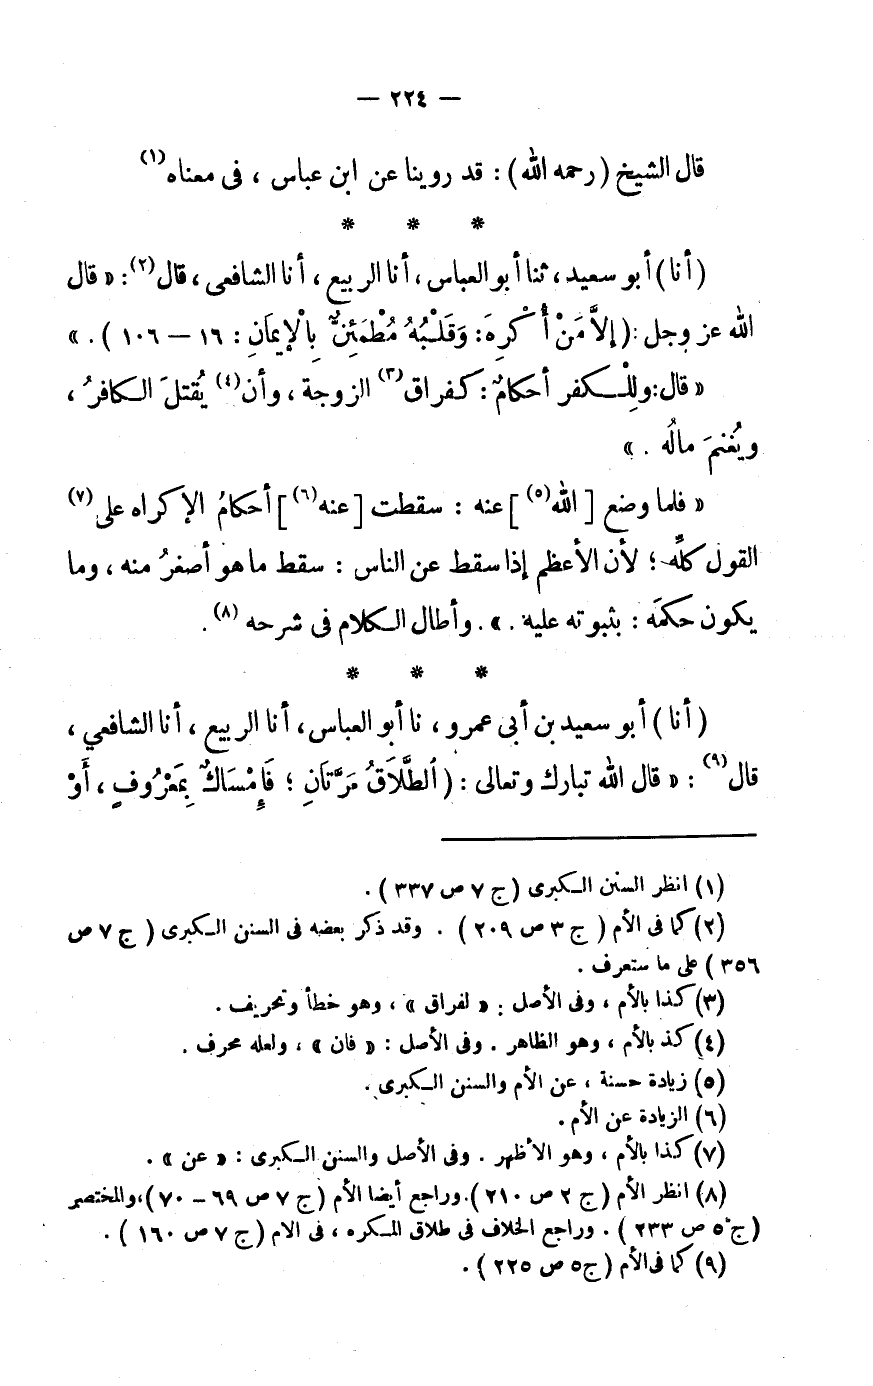 — ٢٢٤ —
قال الشيخ (رحمه الله) : قد روينا عن ابن عباس ، فى معناه (١)
* * *
(أنا) أبو سعيد ، ثنا أبو العباس ، أنا الربيع ، أنا الشافعى ، قال (٢) : « قال
الله عز وجل : (إِلاَّ مَنْ أُكْرِهَ : وَقَلْبُهُ مُطْمَئِنٌّ بِالْإِيمَانِ : ١٦ — ١٠٦ ) . »
« قال : وللْكفر أحكامٌ : كفراق (٣) الزوجة ، وأن (٤) يُقتلَ الكافرُ ،
ويُغنمَ مالُه . »
« فلما وضع [ الله (٥) ] عنه : سقطت [ عنه (٦) ] أحكامُ الإكراه على (٧)
القول كلِّه ؛ لأن الأعظم إذا سقط عن الناس : سقط ما هو أصغرُ منه ، وما
يكون حكمَه : بثبوته عليه . » . وأطال الكلام فى شرحه (٨) .
* * *
( أنا ) أبو سعيد بن أبى عمرو ، نا أبو العباس ، أنا الربيع ، أنا الشافعي ،
قال (٩) : « قال الله تبارك وتعالى : ( ٱلطَّلَاقُ مَرَّتَانِ ؛ فَإِمْسَاكٌ بِمَعْرُوفٍ ، أَوْ
(١) انظر السنن الكبرى (ج ٧ ص ٣٣٧ ) .
(٢) كما فى الأم ( ج ٣ ص ٢٠٩ ) . وقد ذكر بعضه فى السنن الكبرى ( ج ٧ ص
٣٥٦ ) على ما ستعرف .
(٣) كذا بالأم ، وفى الأصل : « لفراق » ، وهو خطأ وتحريف .
(٤) كذ بالأم ، وهو الظاهر . وفى الأصل : « فان » ، ولعله محرف .
(٥) زيادة حسنة ، عن الأم والسنن الكبرى .
(٦) الزيادة عن الأم .
(٧) كذا بالأم ، وهو الأظهر . وفى الأصل والسنن الكبرى : « عن » .
(٨) انظر الأم (ج ٢ ص ٢١٠ ) . وراجع أيضا الأم (ج ٧ ص ٦٩ – ٧٠ ) ، والمختصر
(ج ٥ ص ٢٣٣ ) . وراجع الخلاف فى طلاق المكره ، فى الام (ج ٧ ص ١٦٠ ) .
(٩) كما فى الأم (ج٥ ص ٢٢٥ ) .